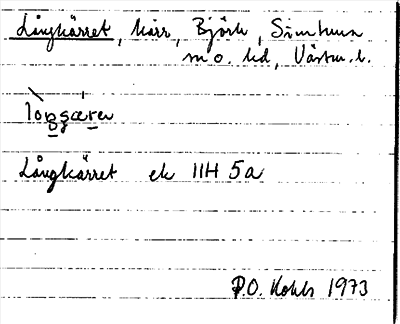 Långkärret, kärr, Björk, Simtuna
sn o. hd, Västm. l.
Långkärret ek 11H 5a
P.O. Kohls 1973